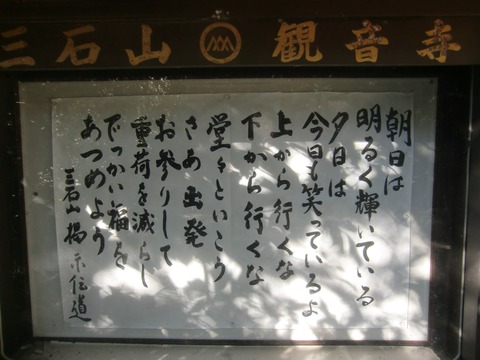 三石山 観音寺
朝日は
明るく輝いている
夕日は
今日も笑っているよ
上から行くな
下から行くな
堂々といこう
さあ出発
お参りして
重荷を減らし
でっかい福を
あつめよう
三石山 掲示伝道